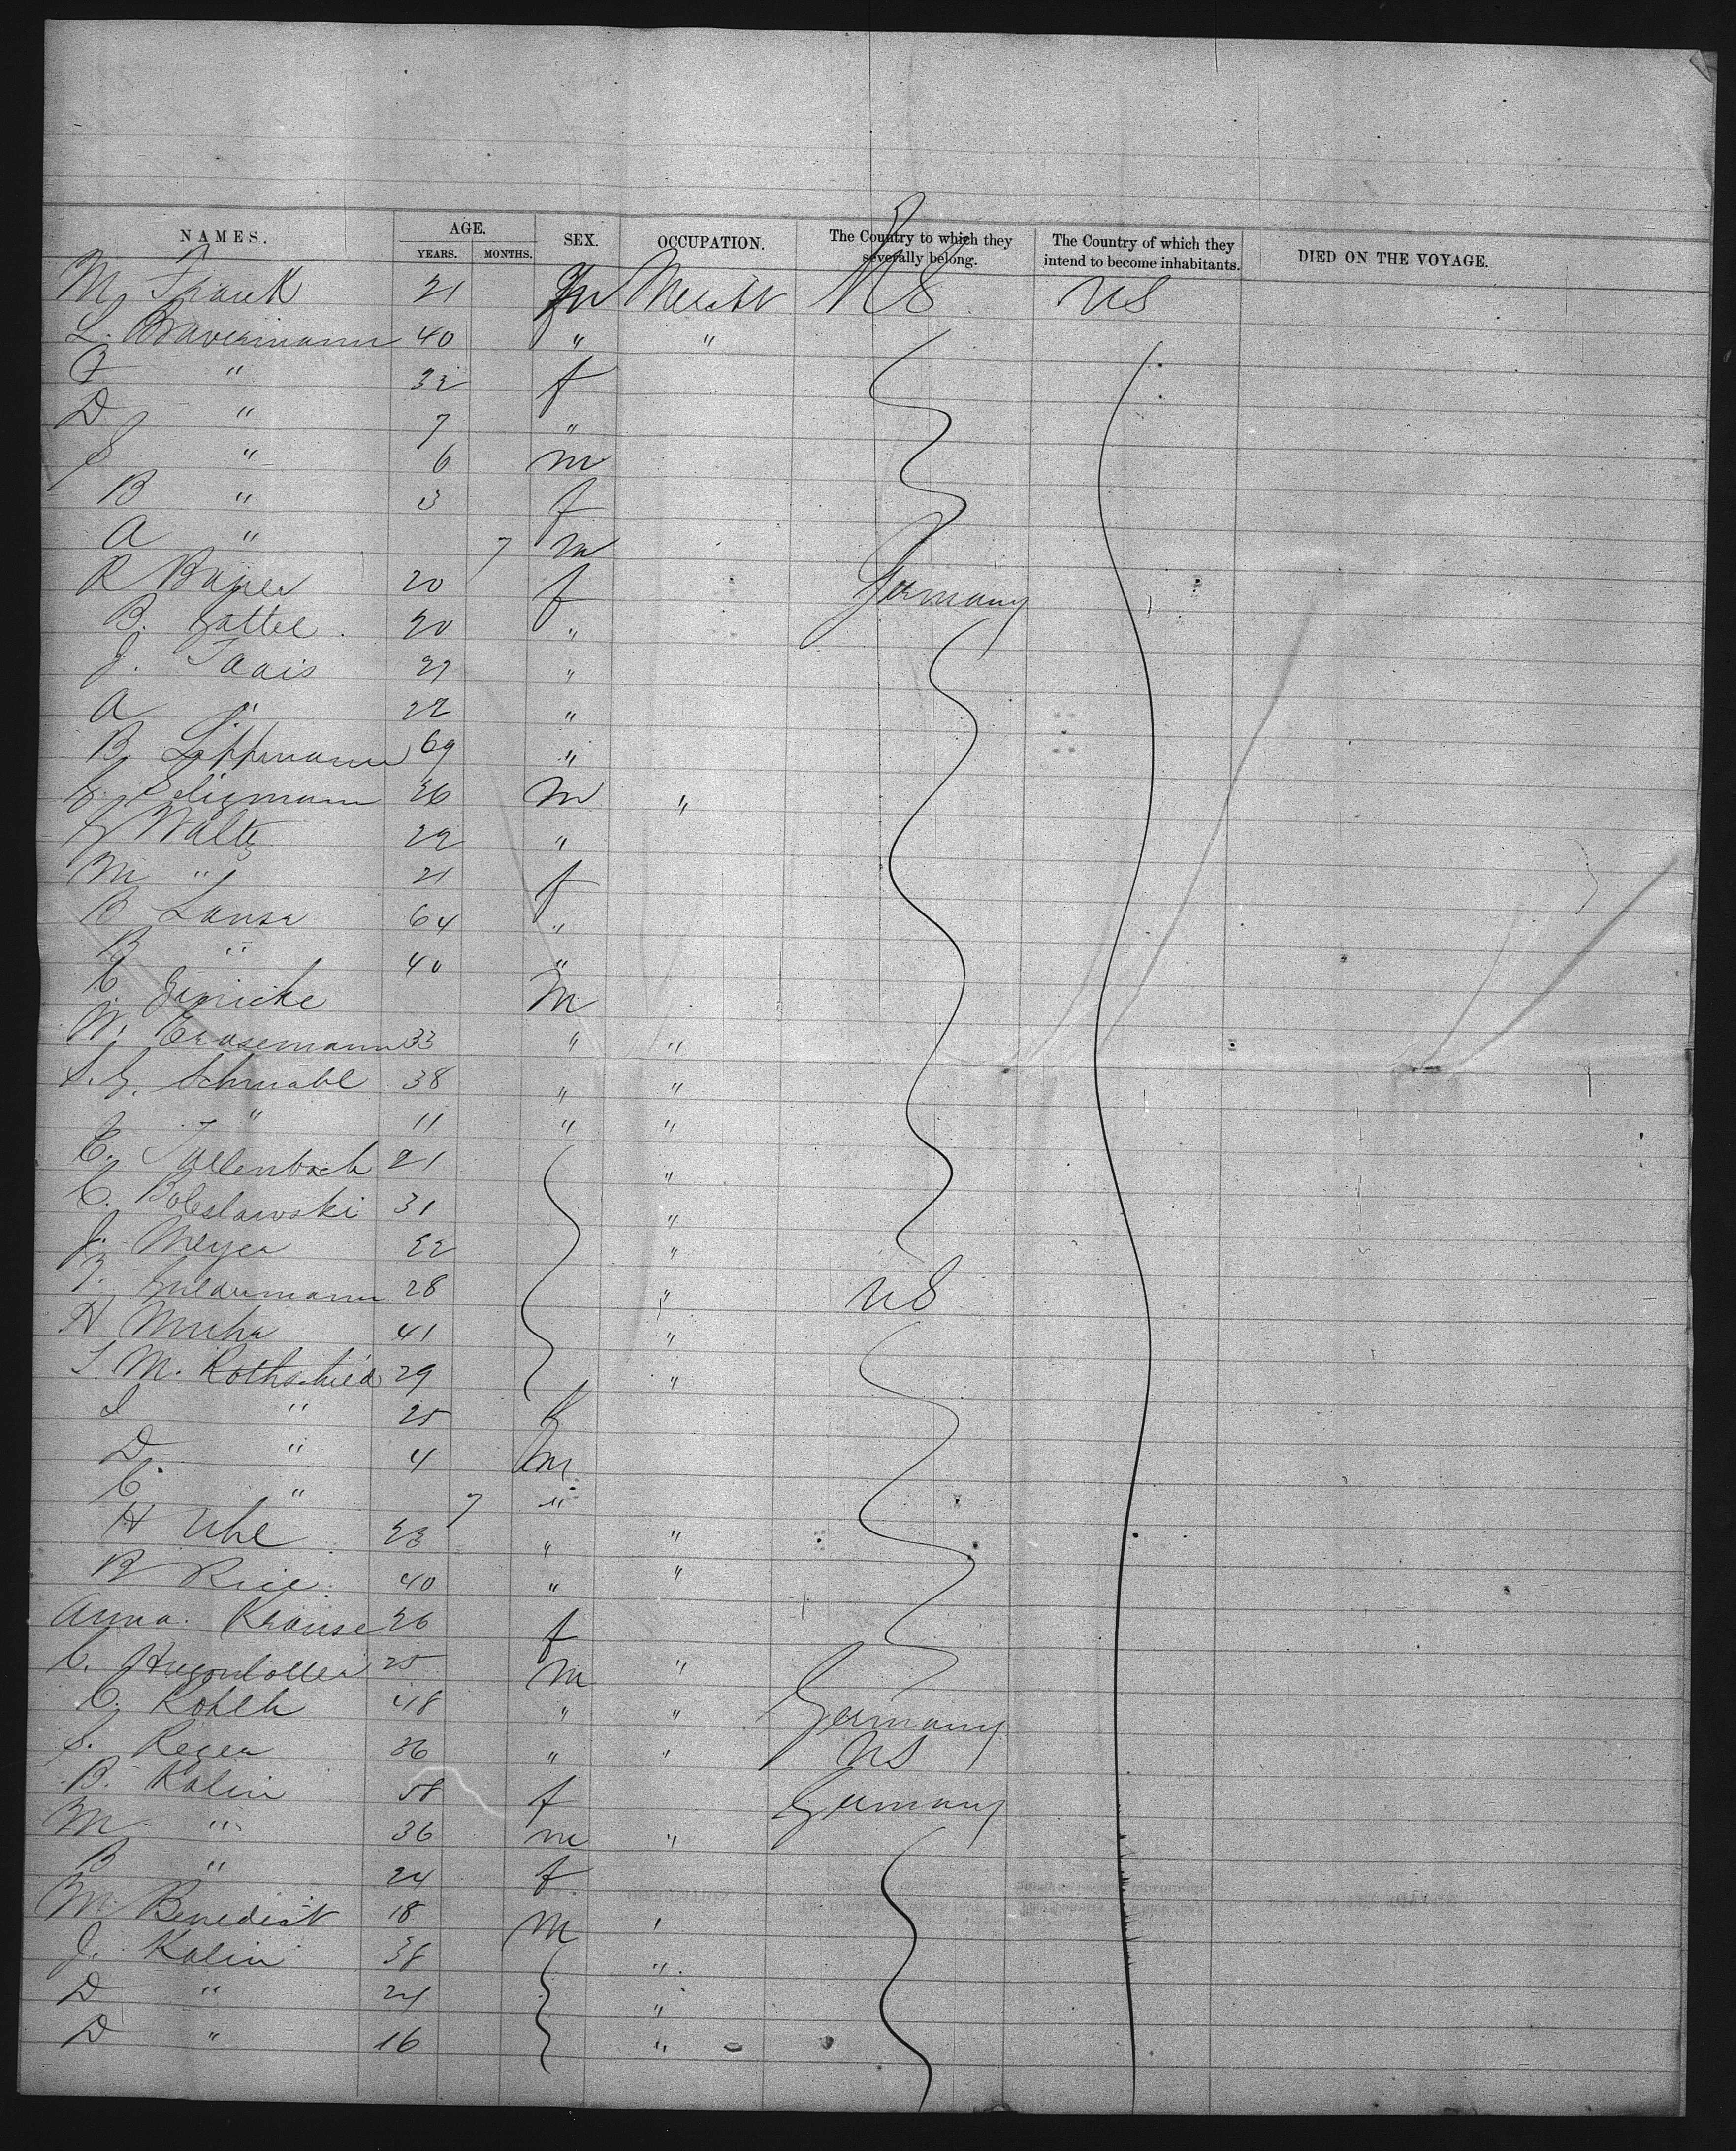 NAMES. AGE. SEX. OCCUPATION. The Country to which they severally belong. The Country of which they intend to become inhabitants. DIED ON THE VOYAGE.
YEARS. MONTHS.
M. Frank 21 m Mercht US US
L. Bravermann 40 " "
F " 32 f
D " 7 "
S " 6 m
B " 3 f
A " 7 m
R 20 f Germany
B. 20 "
J. 27 "
A " 22 "
B. Lippmann 69 "
Seligmann 36 m "
Waltz 22 "
M " 21 f
B 64 "
B " 40 "
C. m
W. 33 " "
38 " "
" 11 " "
C. 21 "
C. Boleslawski 31 "
J. Meyer 22 "
28 " US
H 41 "
S. M. Rothschild 29 "
I " 25 f
D. " 4 m
C. " 7 "
H Uhl 23 " "
B Rice 40 " "
Anna. Krause 26 f
C. 25 m "
C. 48 " " Germany
S. 36 " " US
B. Kalin 58 f Germany
M " 36 m "
B " 24 f
M Benedict 18 m "
J. Kalin 38 "
D " 24 "
D " 16 "